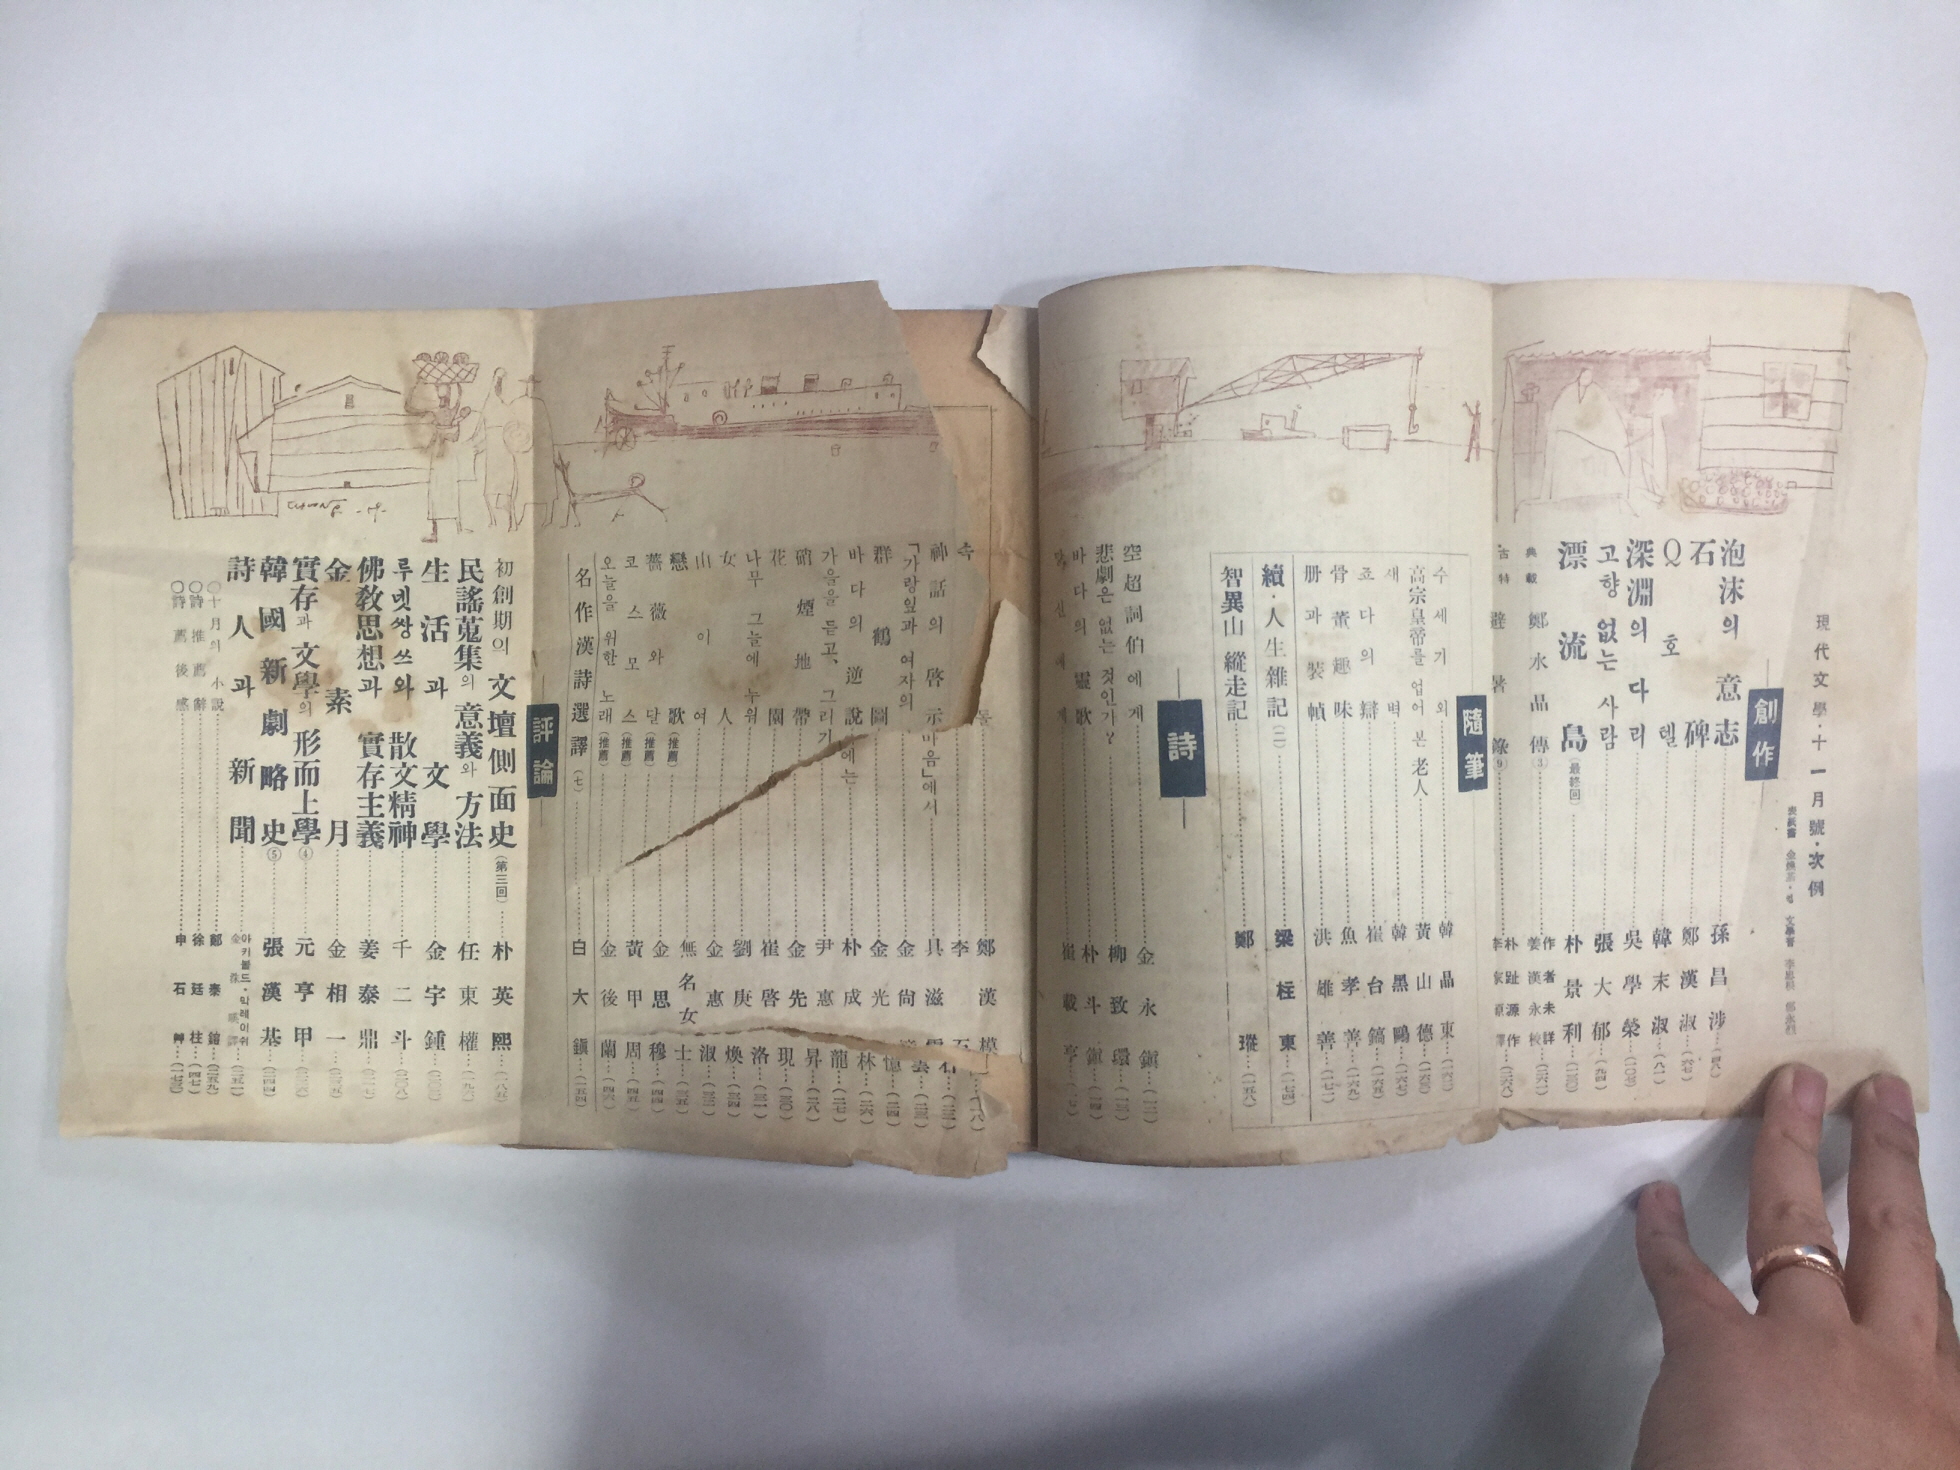 現代文學・十一月號・次例
創作
泡沫의 意志 孫昌涉
石碑 鄭漢淑
Q호텔 韓末淑
深淵의 다리 吳學榮
고향 없는 사람 張大郁
漂流島(最終回) 朴景利
鄭水晶傳③ 作者未詳 姜漢永校
避暑錄⑨ 朴趾源作
隨筆
수세기 외 韓晶東
高宗皇帝를 업어 본 老人 黃山德
새벽 韓黑鷗
죠다의 辯 崔台鎬
骨董趣味 魚孝善
册과 裝幀 洪雄善
續・人生雜記(二) 梁柱東
智異山 縱走記 鄭瑽(一五八)
詩
空超詞伯에게 金永鎭
悲劇은 없는 것인가? 柳致環
바다의 靈歌 朴斗鎭
崔載亨
鄭漢模
神話의 啓示 具滋雲
「가랑잎과 여자의 마음」에서 金尙億
群鶴圖 金光林
바다의 逆說 朴成龍
가을을 듣고, 그리기에는 尹惠昇
硝煙地帶 金先現
花園 崔啓洛
나무 그늘에 누워 劉庚煥
女人 金惠淑
山이여 無名女士
戀歌(推薦) 金思穆
薔薇와 달(推薦) 黃甲周
코스모스(推薦)
오늘을 위한 노래(推薦) 金後蘭
名作漢詩選譯(七) 白大鎭(一五四)
評論
初創期의 文壇側面史(第三回) 朴英熙(一八五)
民謠蒐集의 意義와 方法 任東權
生活과 文學 金宇鍾
루넷쌍쓰와 散文精神 千二斗
佛敎思想과 實存主義 姜泰鼎
金素月 金相一
實存과 文學의 形而上學④ 元亨甲
韓國新劇略史⑤ 張漢基(二四四)
詩人과 新聞 아키볼드・믹레이쉬
○十月의 小說 鄭泰鎔(二五九)
○詩推薦辭 徐廷柱(四七)
○詩薦後感 申石艸